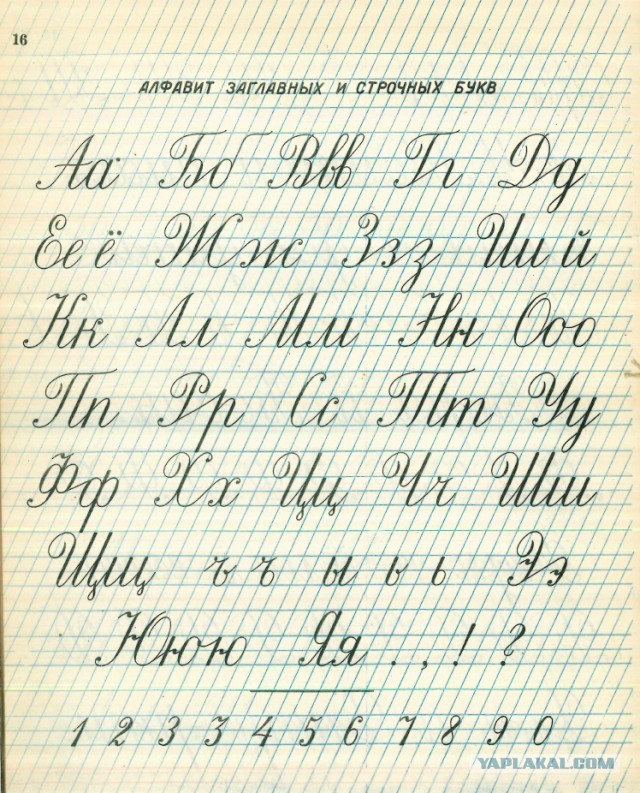 16
АЛФАВИТ ЗАГЛАВНЫХ И СТРОЧНЫХ БУКВ
Аа Бб Ввв Гг Дд
Ее ё Жж Ззз Ии й
Кк Лл Мм Нн Ооо
Пп Рр Сс Тт Уу
Фф Хх Цц Чч Шш
Щщ ъ ъ ы ь ь Ээ
Ююю Яя . , ! ?
1 2 3 3 4 5 6 7 8 9 0
YAPLAKAL.COM